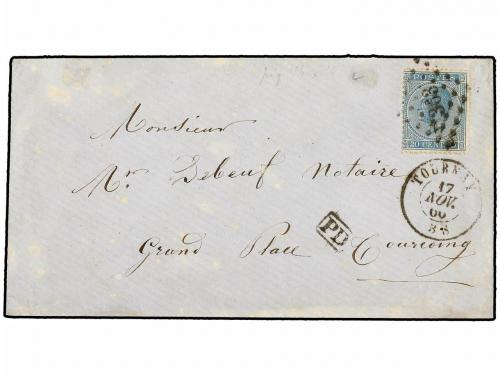 POSTES
20 CENT
Monsieur
Mr. Debeuf Notaire
TOURNAY
17
NOV.
66
3S
PD
Grand Place Tourcoing